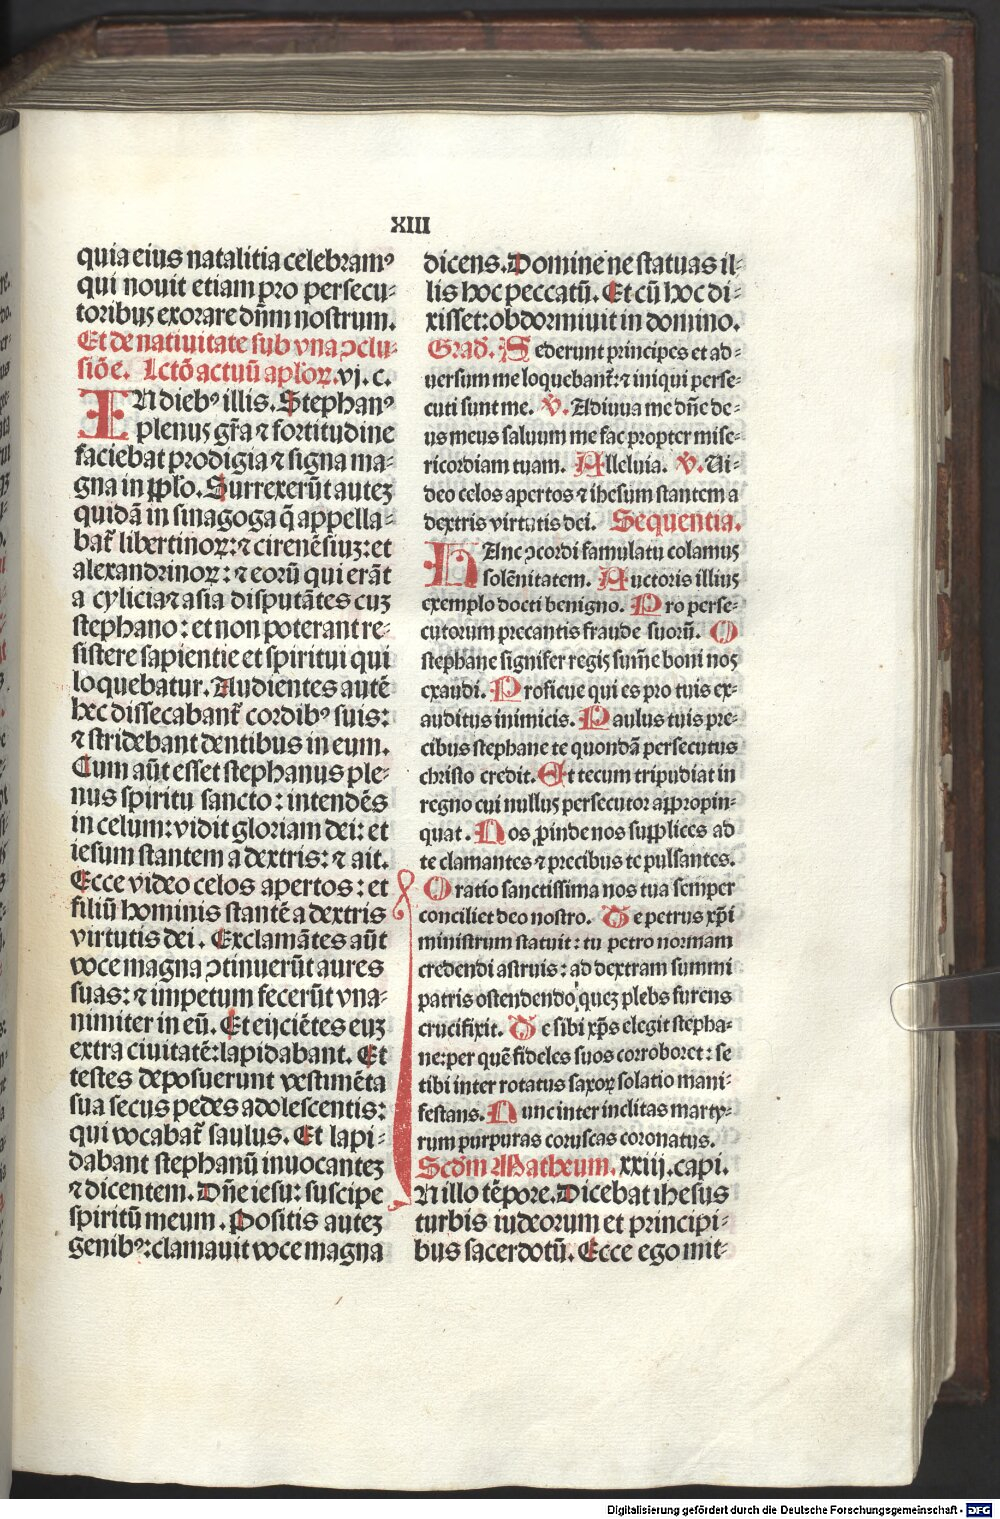 XIII
quia eius natalitia celebramꝰ
qui nouit etiam pro persecu⸗
toribus exorare dñm nostrum.
Et de natiuitate sub vna ↄclu⸗
siōe. Lctō actuū aplorꝝ.vj.c.
IN diebꝰ illis. Stephanꝰ
plenus gr̄a ⁊ fortitudine
faciebat prodigia ⁊ signa ma⸗
gna in pplo. Surrexerūt autez
quidā in sinagoga q̄ appella⸗
bat᷑ libertinoꝝ: ⁊ cirenēsiuz: et
alexandrinoꝝ: ⁊ eorū qui erāt
a cylicia ⁊ asia disputātes cuz
stephano: et non poterant re⸗
sistere sapientie et spiritui qui
loquebatur. Audientes autē
hec dissecabant᷑ cordibꝰ suis:
⁊ stridebant dentibus in eum.
Cum aūt esset stephanus ple⸗
nus spiritu sancto: intendēs
in celum: vidit gloriam dei: et
iesum stantem a dextris: ⁊ ait.
Ecce video celos apertos: et
filiū hominis stantē a dextris
virtutis dei. Exclamātes aūt
voce magna ↄtinuerūt aures
suas: ⁊ impetum fecerūt vna⸗
nimiter in eū. Et eijciētes euz
extra ciuitatē: lapidabant. Et
testes deposuerunt vestimēta
sua secus pedes adolescentis:
qui vocabat᷑ saulus. Et lapi⸗
dabant stephanū inuocantez
⁊ dicentem. Dn̄e iesu: suscipe
spiritū meum. Positis autez
genibꝰ: clamauit voce magna
dicens. Domine ne statuas il⸗
lis hoc peccatū. Et cū hoc di⸗
xisset: obdormiuit in domino.
Grad̄. Sederunt principes et ad⸗
uersum me loquebant᷑: ⁊ iniqui perse⸗
cuti sunt me. V̄. Adiuua me dn̄e de⸗
us meus saluum me fac propter mise⸗
ricordiam tuam. Alleluia. V̄. Ui⸗
deo celos apertos ⁊ ihesum stantem a
dextris virtutis dei. Sequentia.
HAnc ↄcordi famulatu colamus
solēnitatem. Auctoris illius
exemplo docti benigno. Pro perse⸗
cutorum precantis fraude suorū. O
stephane signifer regis sum̄e boni nos
exaudi. Proficue qui es pro tuis ex⸗
auditus inimicis. Paulus tuis pre⸗
cibus stephane te quondā persecutus
christo credit. Et tecum tripudiat in
regno cui nullus persecutor appropin⸗
quat. Nos ꝓinde nos supplices ad
te clamantes ⁊ precibus te pulsantes.
Oratio sanctissima nos tua semper
conciliet deo nostro. Te petrus xp̄i
ministrum statuit: tu petro normam
credendi astruis: ad dextram summi
patris ostendendo quez plebs furens
crucifixit. Te sibi xp̄s elegit stepha⸗
ne: per quē fideles suos corroboret: se
tibi inter rotatus saxoꝝ solatio mani⸗
festans. Nunc inter inclitas marty⸗
rum purpuras coruscas coronatus.
Scd̄m Matheum. xxiij. capi.
IN illo tēpore. Dicebat ihesus
turbis iudeorum et principi⸗
bus sacerdotū. Ecce ego mit⸗
Digitalisierung gefördert durch die Deutsche Forschungsgemeinschaft - DFG